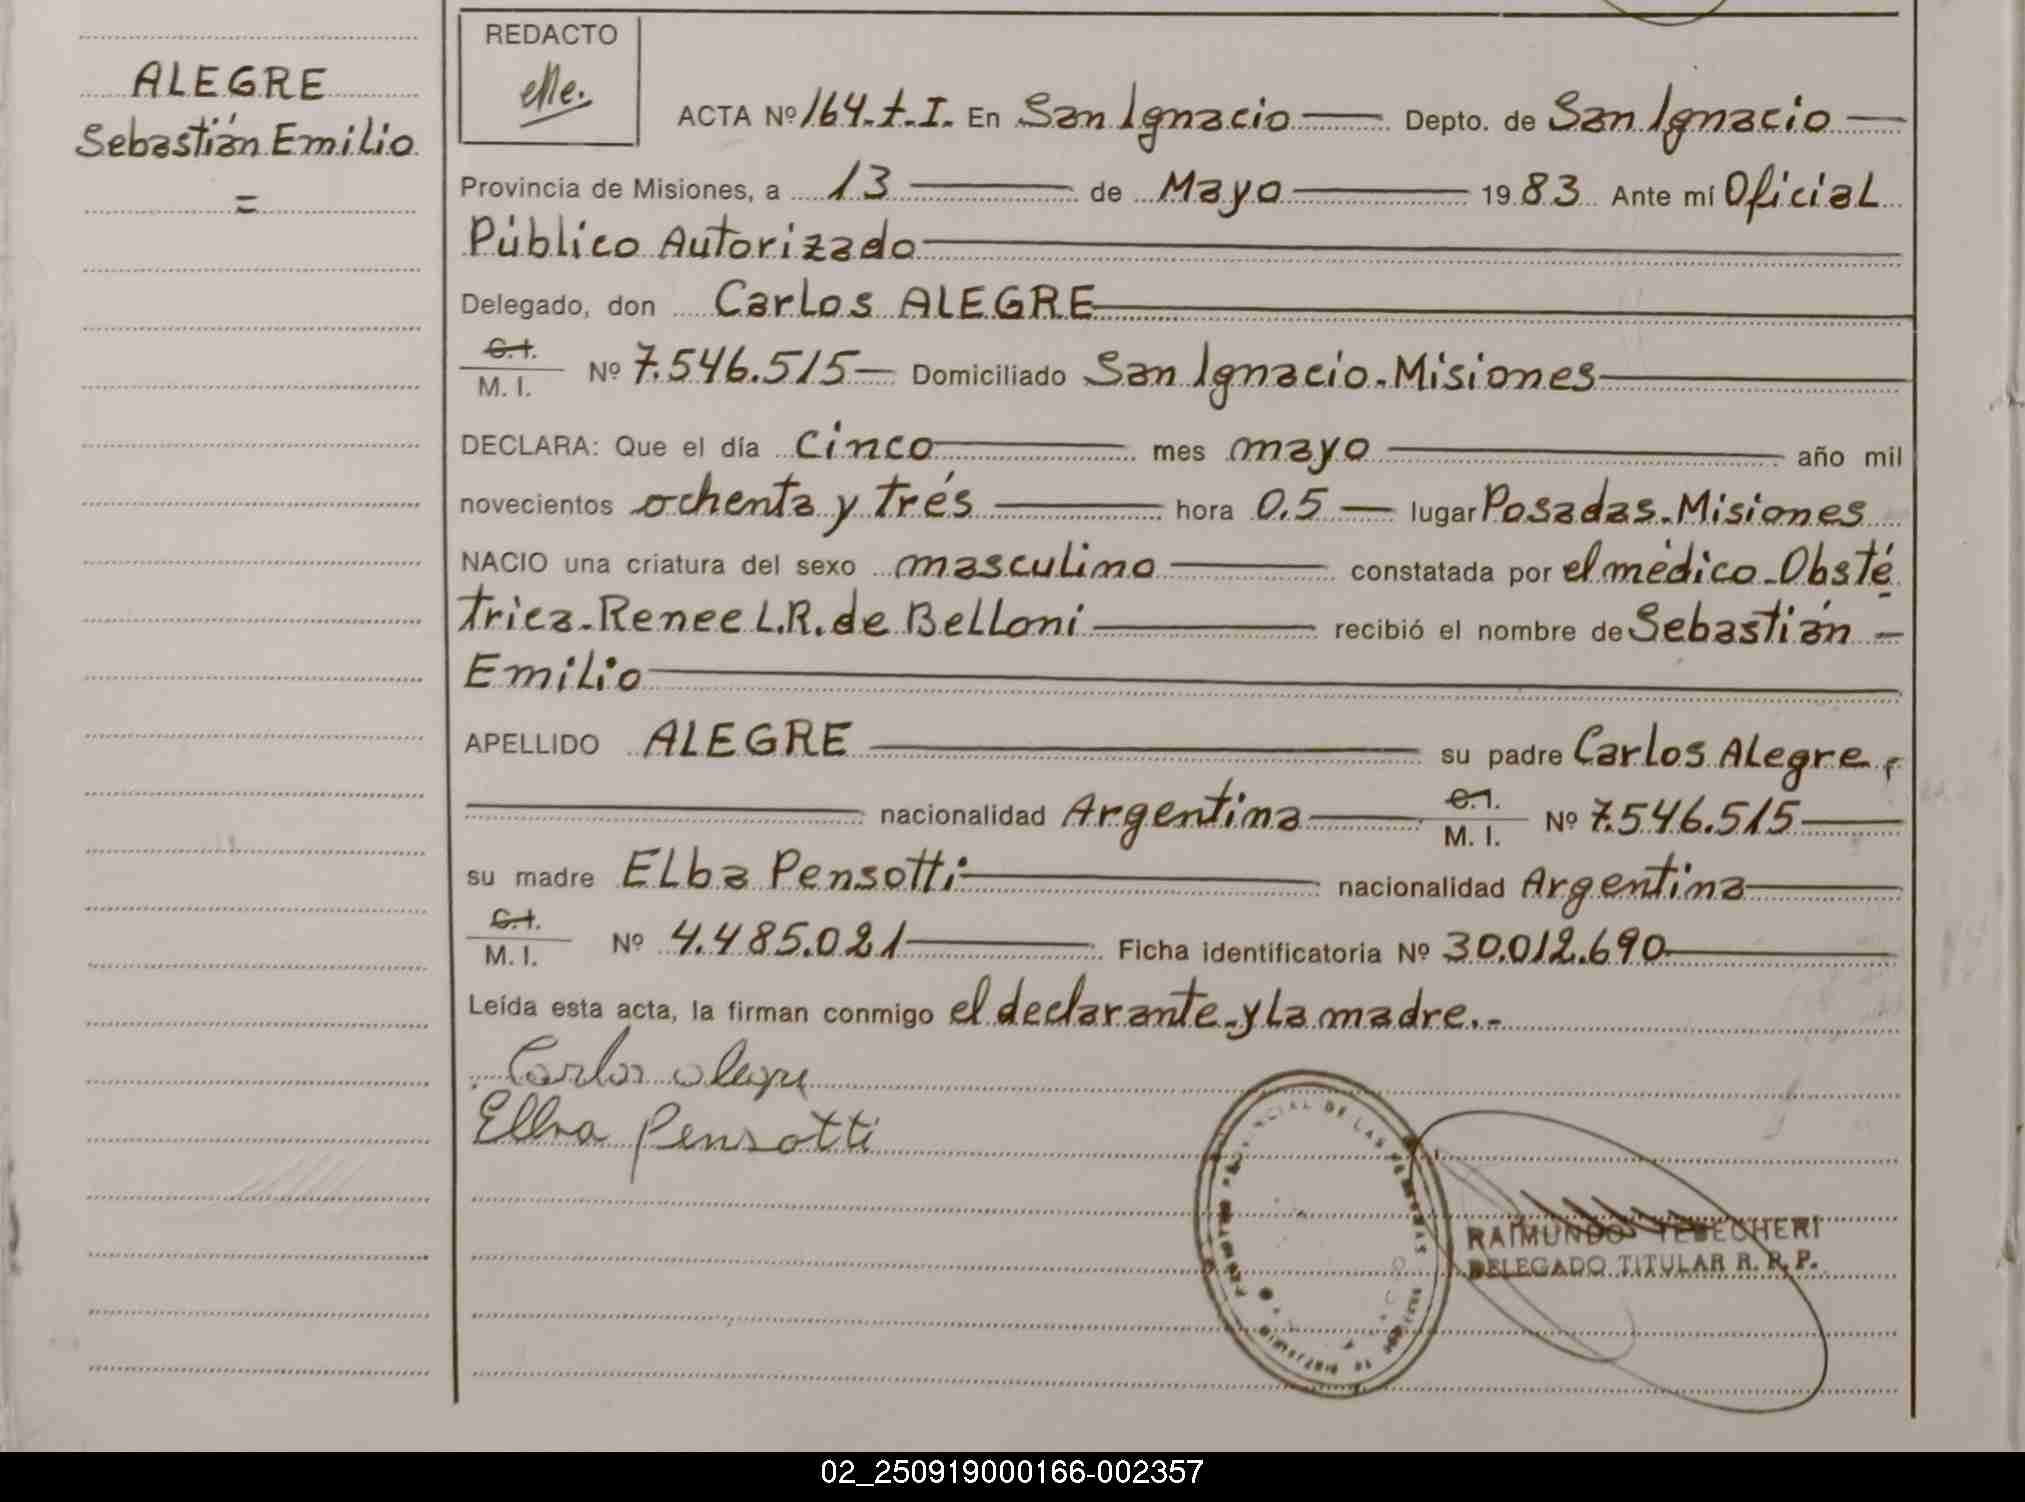 ALEGRE
Sebastián Emilio
=
REDACTO
ACTA Nº 164-t-I. En San Ignacio Depto. de San Ignacio
Provincia de Misiones, a 13 de Mayo 1983 Ante mí Oficial
Público Autorizado
Delegado, don Carlos ALEGRE
C.I. M. I. Nº 7.546.515 Domiciliado San Ignacio-Misiones
DECLARA: Que el día cinco mes mayo año mil
novecientos ochenta y trés hora 0.5 lugar Posadas-Misiones
NACIO una criatura del sexo masculino constatada por el médico-Obsté
trica-Renee L.R. de Belloni recibió el nombre de Sebastián
Emilio
APELLIDO ALEGRE su padre Carlos Alegre,
nacionalidad Argentina C.I. M. I. Nº 7.546.515
su madre Elba Pensotti nacionalidad Argentina
C.I. M. I. Nº 4.485.021 Ficha identificatoria Nº 30.012.690
Leída esta acta, la firman conmigo el declarante-y la madre.-
Carlos Alegre
Elba Pensotti
DE LAS PERSONAS
RAIMUNDO TEBECHERI
DELEGADO TITULAR R. R. P.
02_250919000166-002357